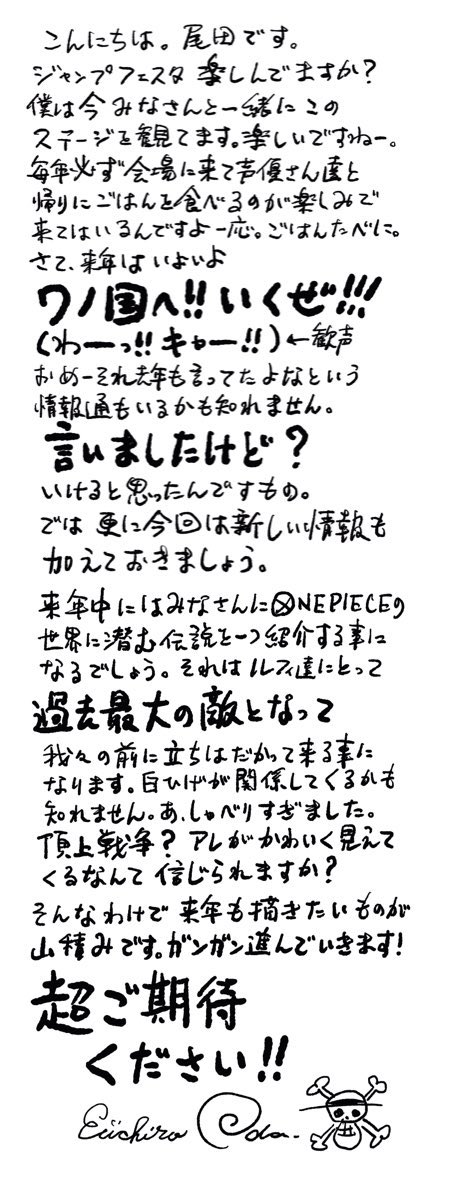 こんにちは。尾田です。
ジャンプフェスタ 楽しんでますか?
僕は今 みなさんと一緒に この
ステージを観てます。楽しいですねー。
毎年必ず会場に来て声優さん達と
帰りにごはんを食べるのが楽しみで
来てはいるんですよ一応。ごはんたべに。
さて、来年は いよいよ
ワノ国へ!! いくぜ!!!
(わーっ!! キャー!!)←歓声
おめーそれ去年も言ってたよなという
情報通もいるかも知れません。
言いましたけど?
いけると思ったんですもの。
では 更に今回は新しい情報も
加えておきましょう。
来年中にはみなさんにONEPIECEの
世界に潜む伝説を一つ紹介する事に
なるでしょう。それはルフィ達にとって
過去最大の敵となって
我々の前に立ちはだかって来る事に
なります。白ひげが関係してくるかも
知れません。あ、しゃべりすぎました。
頂上戦争? アレがかわいく見えて
くるなんて信じられますか?
そんなわけで 来年も描きたいものが
山積みです。ガンガン進んでいきます!
超ご期待
ください!!
Eiichiro Oda.